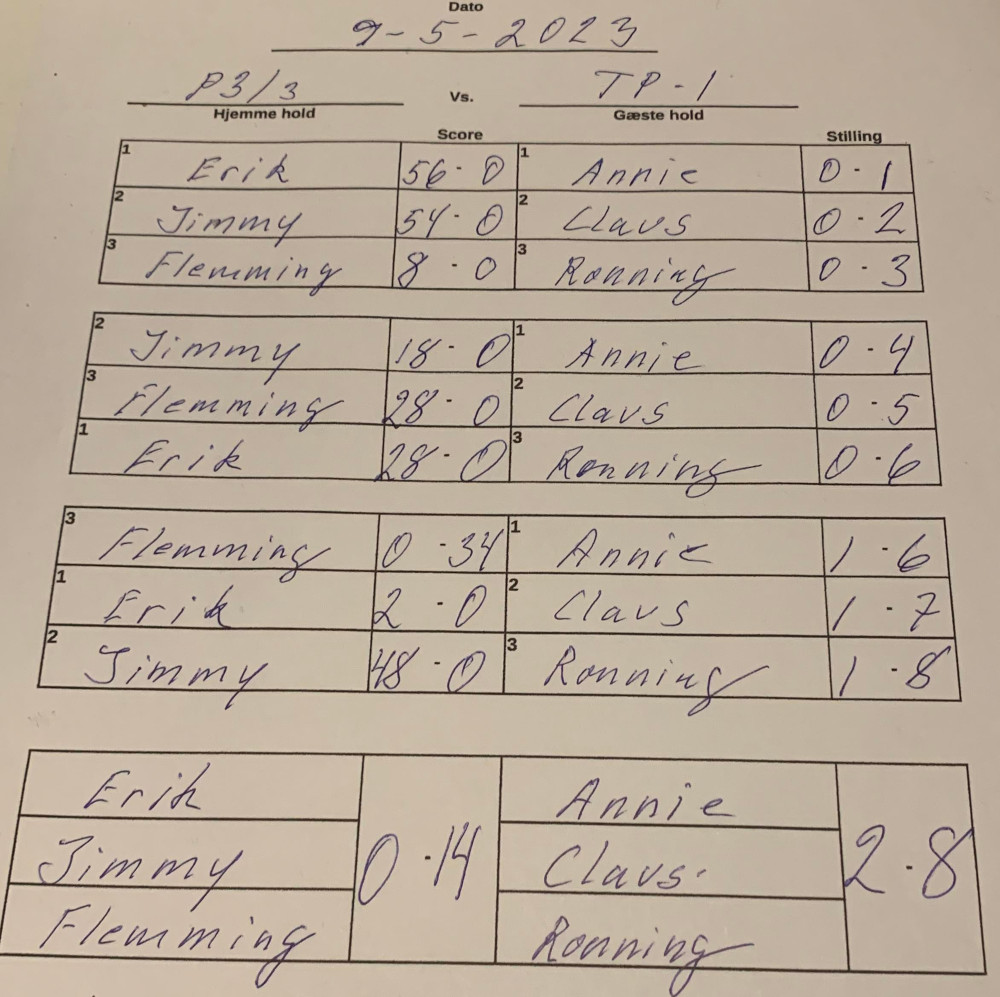 Dato
9-5-2023
P3/3 Vs. TP-1
Hjemme hold Gæste hold
Score Stilling
1 Erik 56-0 1 Annie 0-1
2 Jimmy 54-0 2 Claus 0-2
3 Flemming 8-0 3 Ronning 0-3
2 Jimmy 18-0 1 Annie 0-4
3 Flemming 28-0 2 Claus 0-5
1 Erik 28-0 3 Ronning 0-6
3 Flemming 0-34 1 Annie 1-6
1 Erik 2-0 2 Claus 1-7
2 Jimmy 48-0 3 Ronning 1-8
Erik Annie
Jimmy 0-14 Claus. 2-8
Flemming Ronning